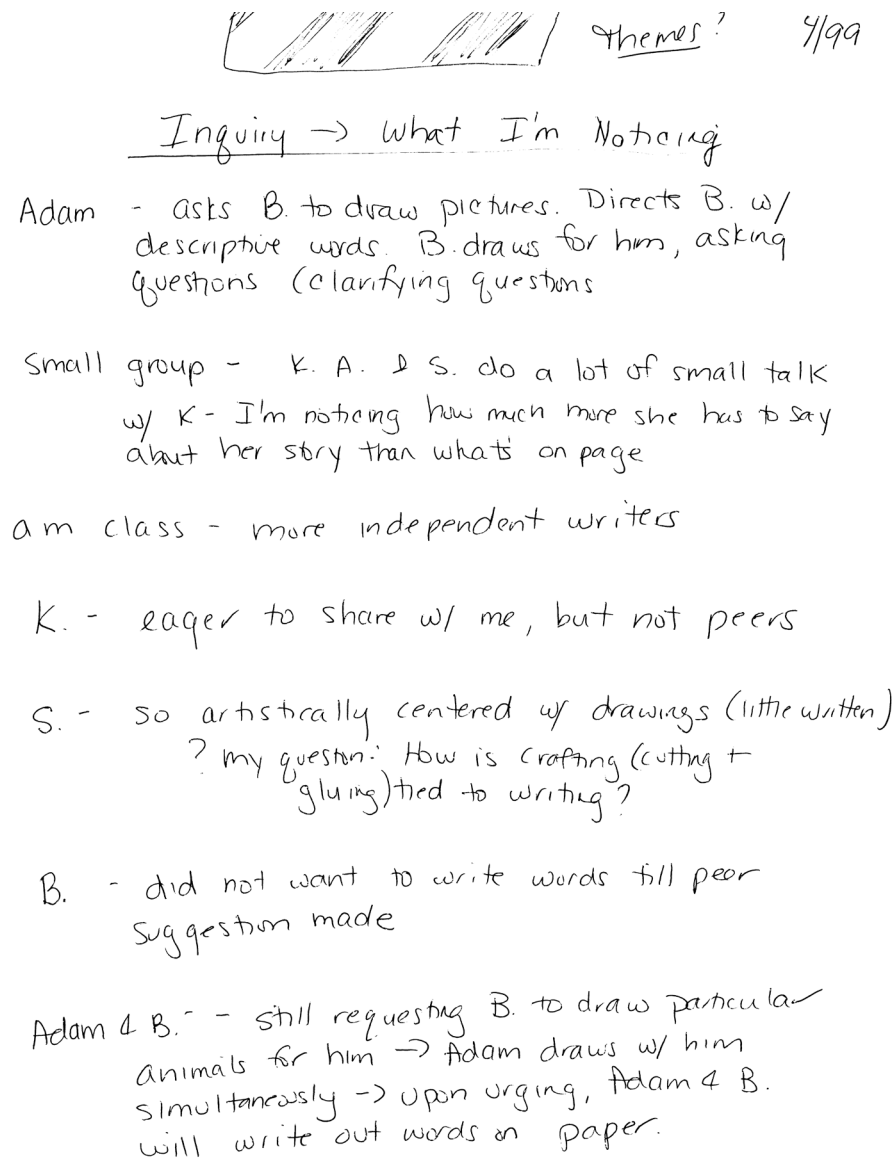 Themes? 4/99
Inquiry → What I'm Noticing
Adam - asks B. to draw pictures. Directs B. w/
descriptive words. B. draws for him, asking
questions (clarifying questions
Small group - K. A. & S. do a lot of small talk
w/ K - I'm noticing how much more she has to say
about her story than what's on page
am class - more independent writers
K. - eager to share w/ me, but not peers
S. - so artistically centered w/ drawings (little written)
? my question: How is crafting (cutting +
gluing) tied to writing?
B. - did not want to write words till peer
suggestion made
Adam & B. - - still requesting B. to draw particular
animals for him → Adam draws w/ him
simultaneously → upon urging, Adam & B.
will write out words on paper.